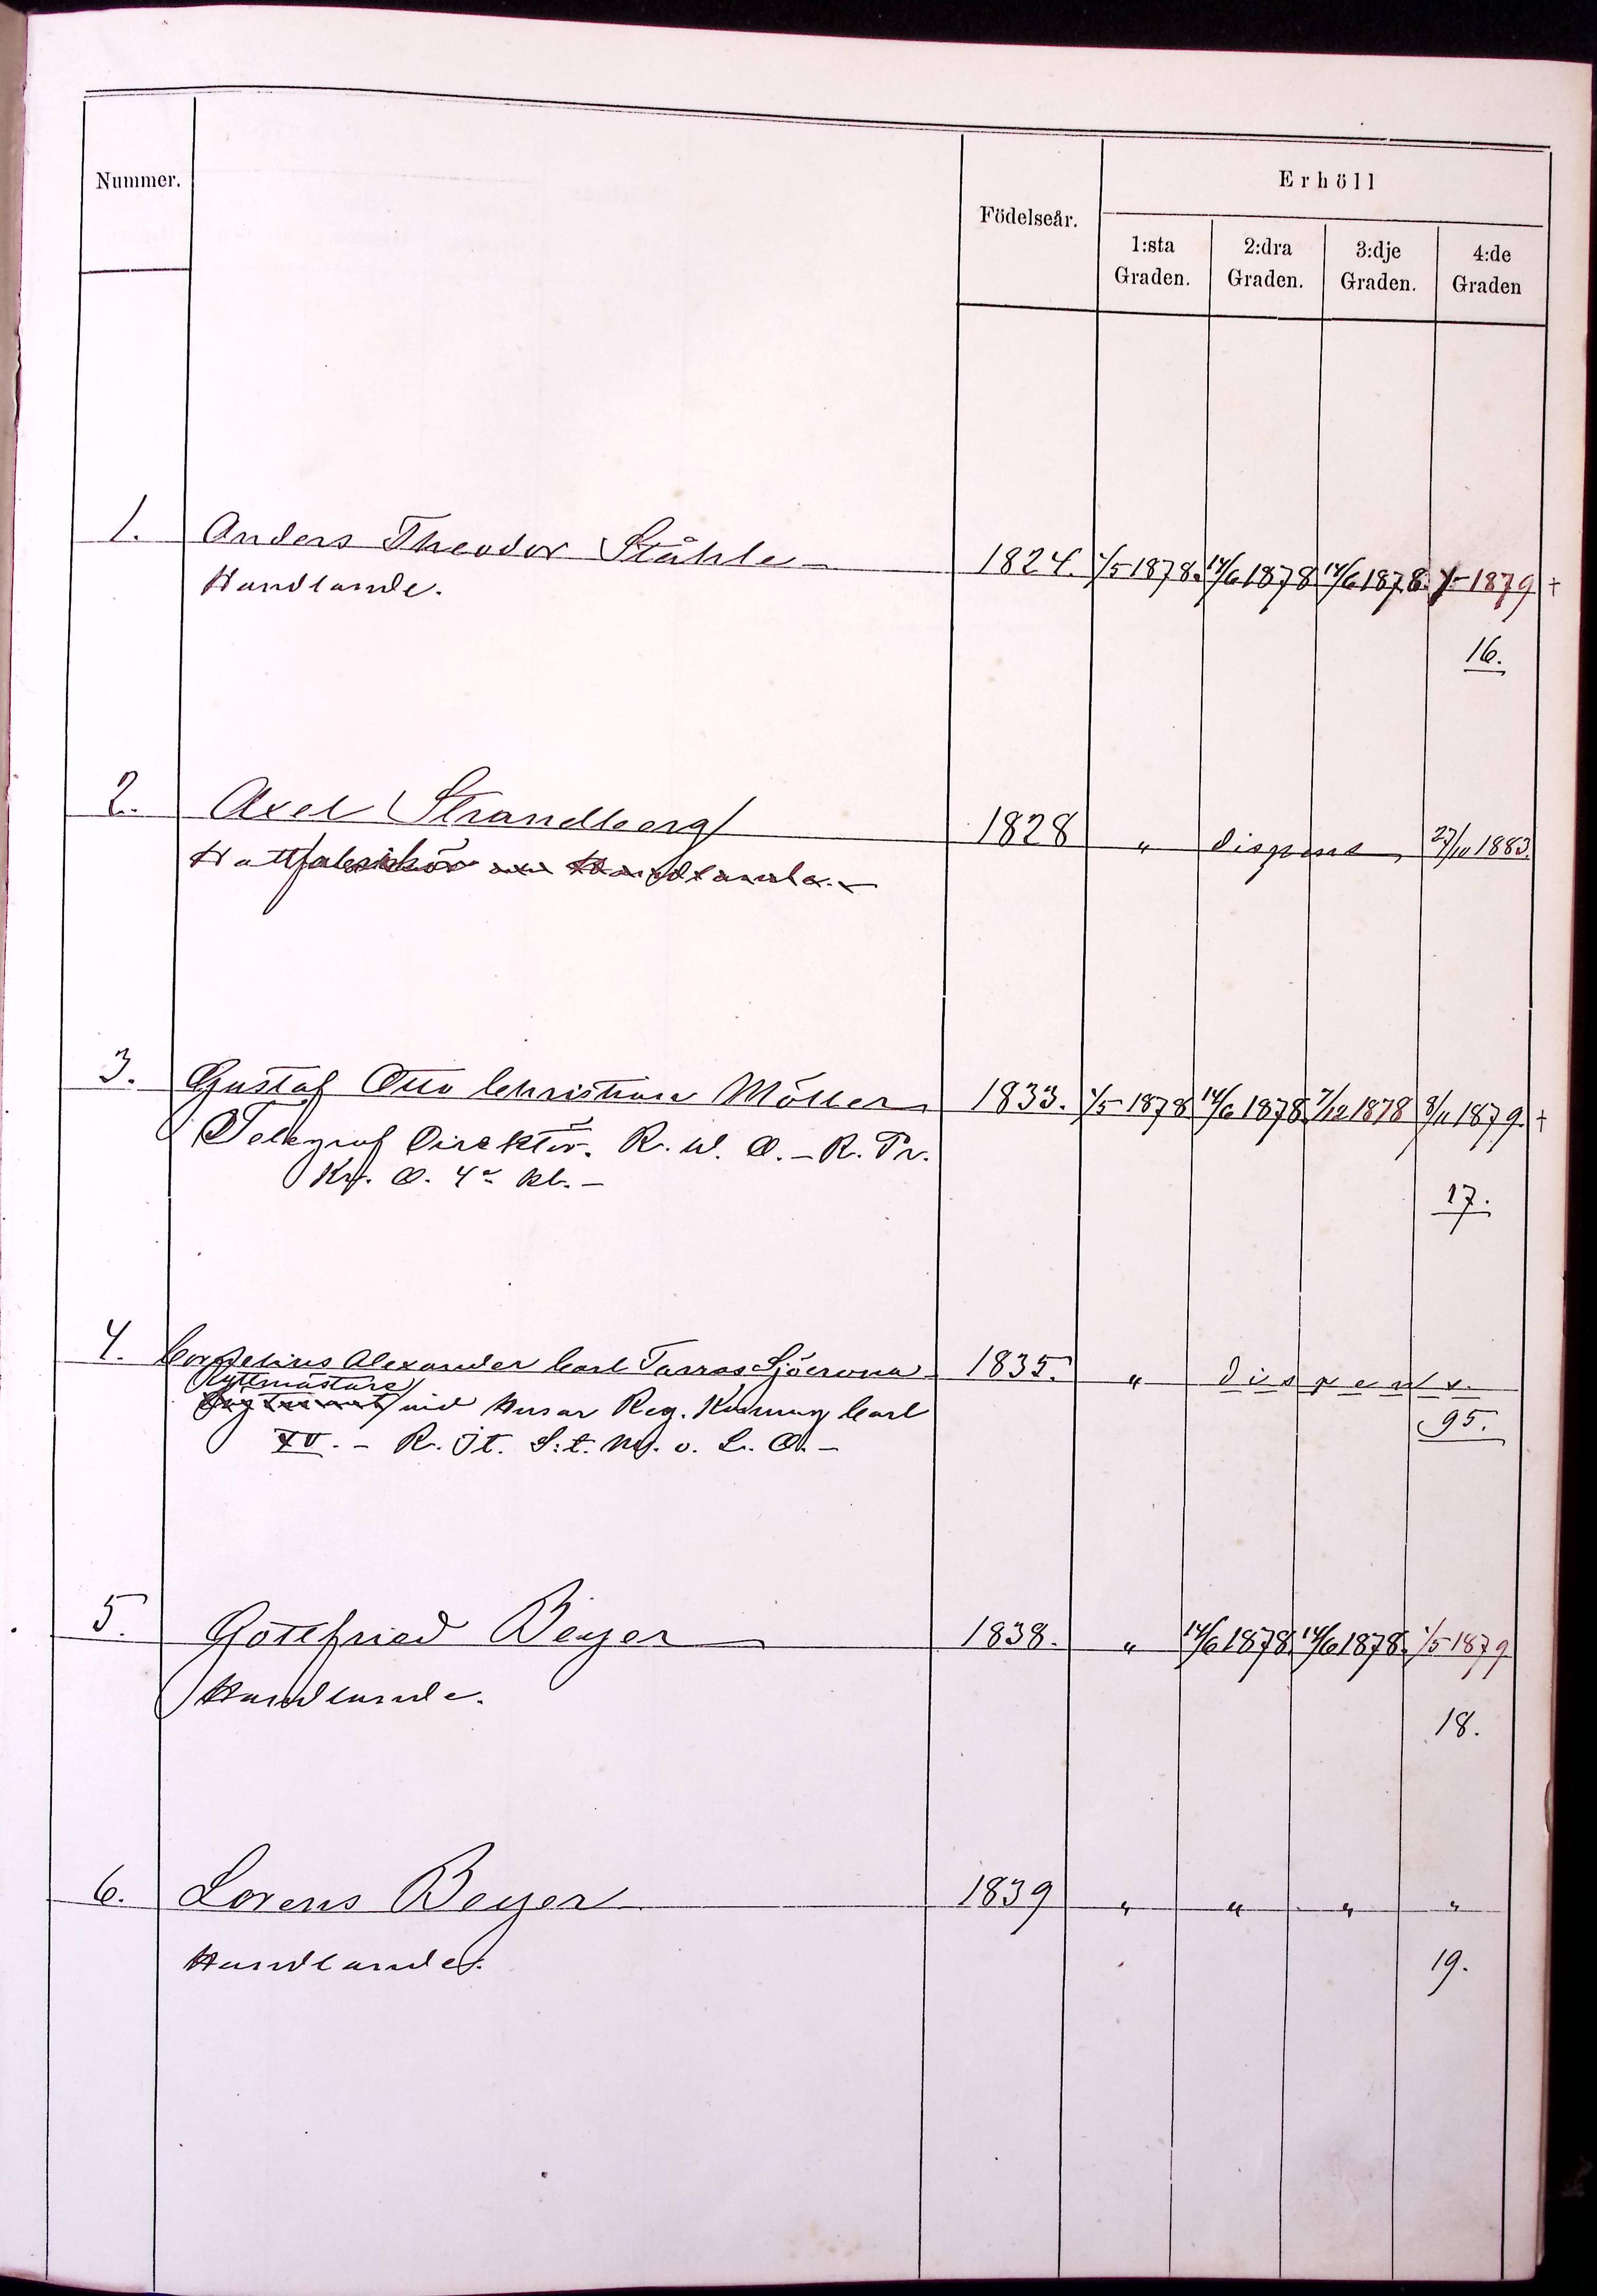 Nummer.
Födelseår.
Erhöll
1:sta Graden.
2:dra Graden.
3:dje Graden.
4:de Graden
1. Anders Theodor Ståhle 1824. 1/5 1878. 14/6 1878 14/6 1878. 1/5 1879 +
Handlande.
16.
2. Axel Strandberg 1828 " dispens 27/10 1883.
Hattfabrikör och Handlande.
3. Gustaf Otto Christian Möller 1833. 1/5 1878 14/6 1878. 7/12 1878 8/11 1879. +
Telegraf Direktör. R. W. O. – R. Pr.
Kr. O. 4e kl. –
17.
4. Cornelius Alexander Carl Tarras Sjöcrona 1835. " dispens.
Ryttmästare
vid Husar Reg. Konung Carl
95.
XV. – R. It. S:t. M. o. L. O. –
5. Gottfried Beyer 1838. " 14/6 1878. 14/6 1878. 1/5 1879
Handlande.
18.
6. Lorens Beyer 1839 " " " "
Handlande.
19.